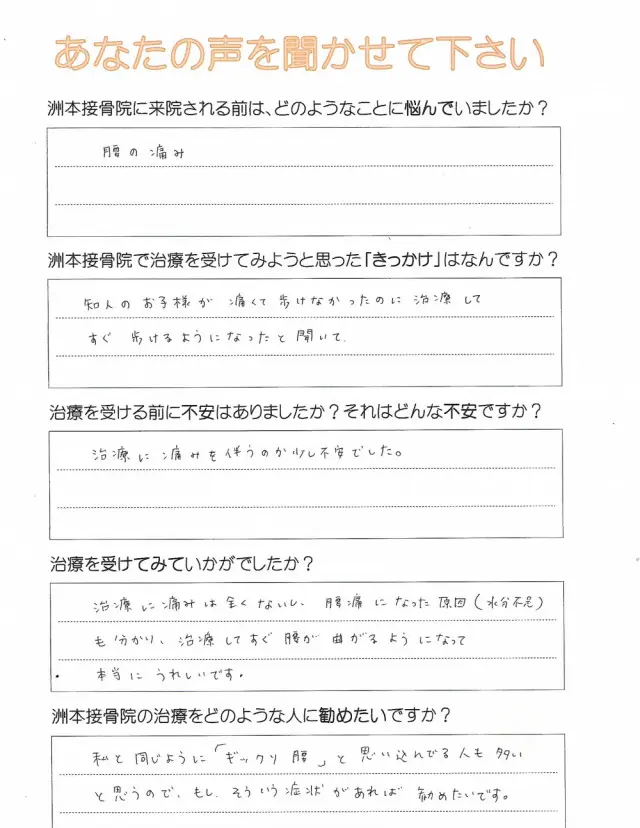 あなたの声を聞かせて下さい
洲本接骨院に来院される前は、どのようなことに悩んでいましたか？
腰の痛み
洲本接骨院で治療を受けてみようと思った「きっかけ」はなんですか？
知人のお子様が痛くて歩けなかったのに治療して
すぐ歩けるようになったと聞いて.
治療を受ける前に不安はありましたか？それはどんな不安ですか？
治療に痛みを伴うのか少し不安でした。
治療を受けてみていかがでしたか？
治療に痛みは全くないし、腰痛になった原因(水分不足)
も分かり、治療してすぐ腰が曲がるようになって
本当にうれしいです.
洲本接骨院の治療をどのような人に勧めたいですか？
私と同じように「ギックリ腰」と思い込んでる人も多い
と思うので、もし、そういう症状があれば勧めたいです。